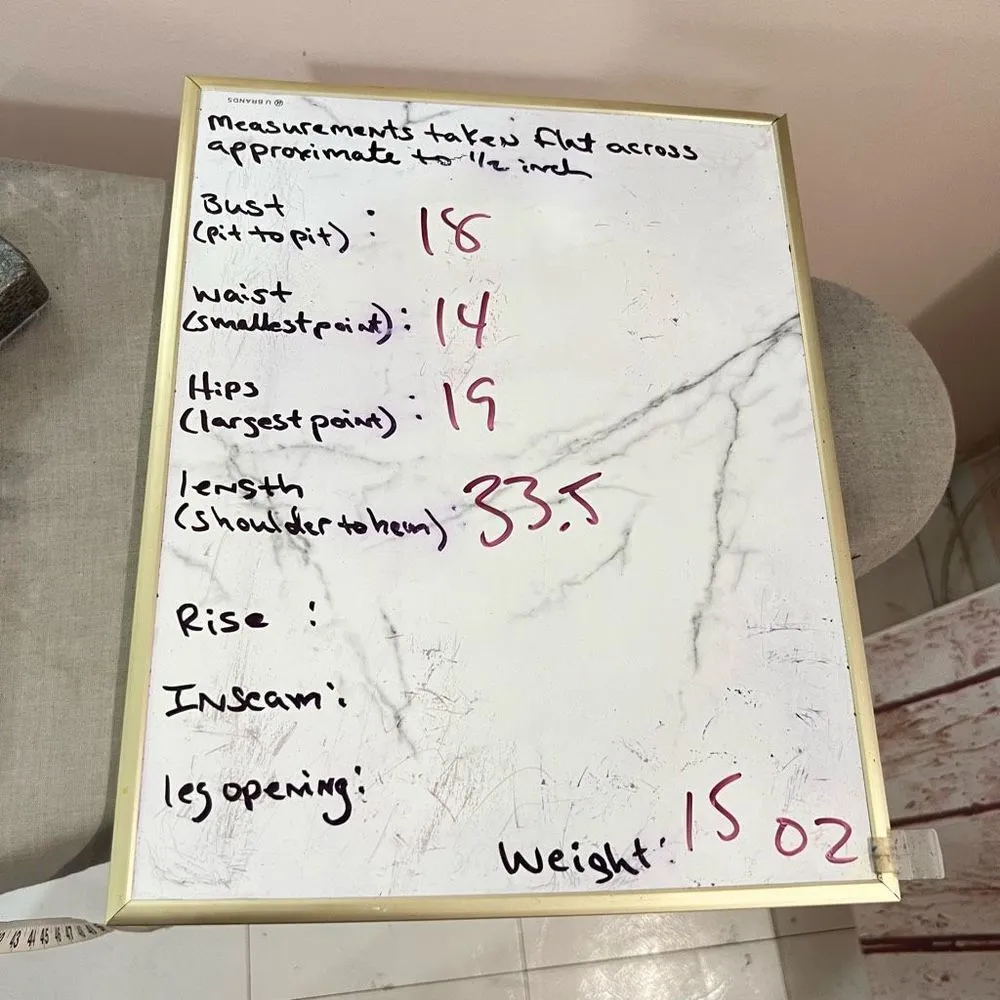 U BRANDS
Measurements taken flat across
approximate to 1/2 inch
Bust
(pit to pit) : 18
waist
(smallest point) : 14
Hips
(largest point) : 19
length
(shoulder to hem) : 33.5
Rise :
Inseam :
leg opening :
Weight : 15 oz
43 44 45 46 47